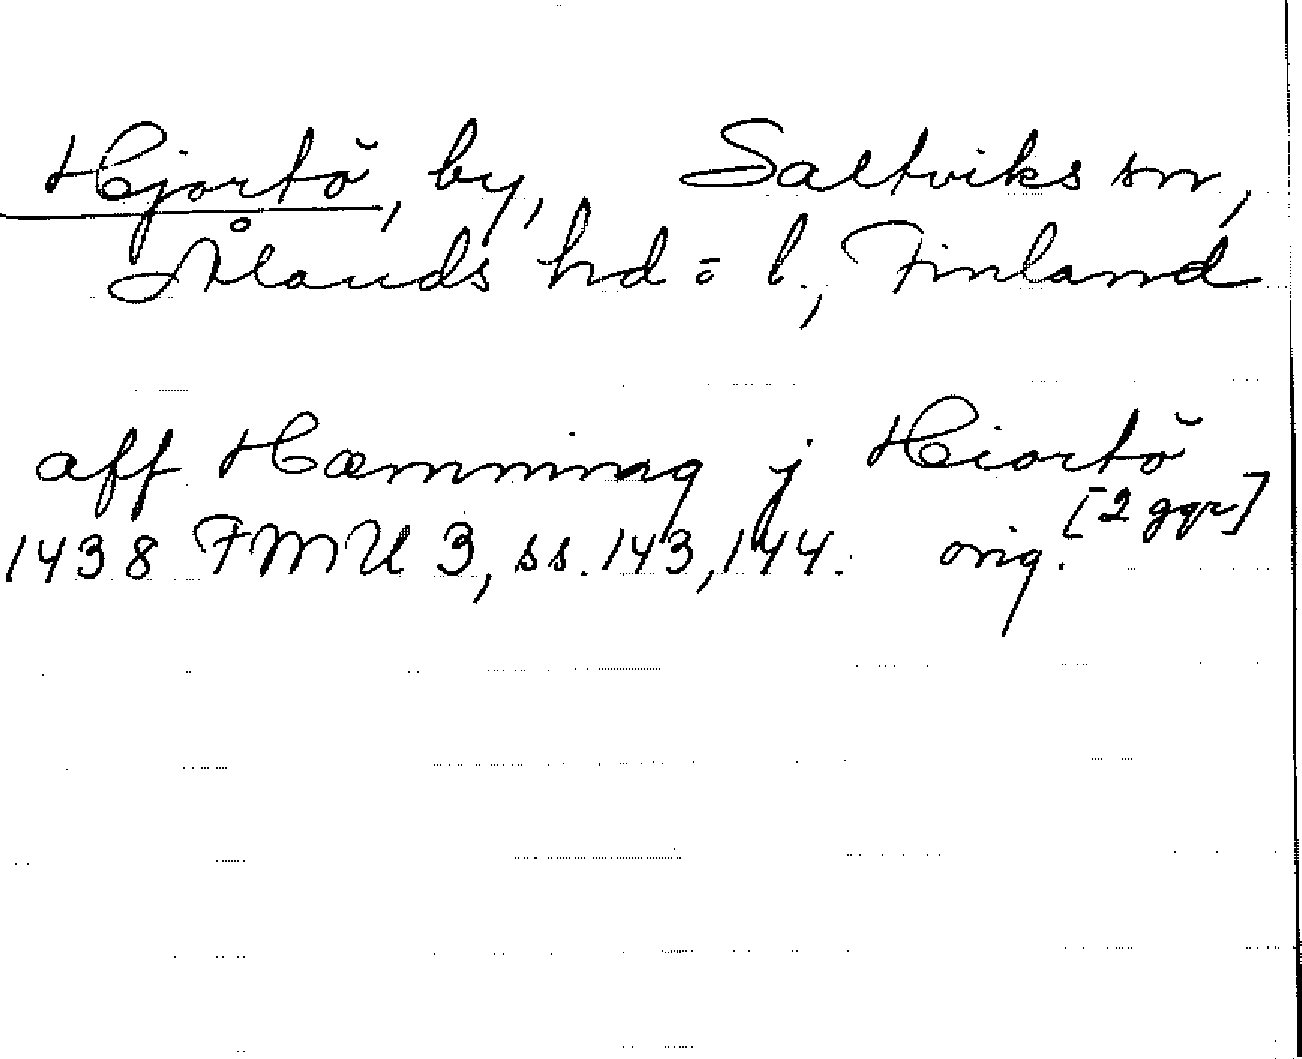 Hjortö, by, Saltviks sn,
Ålands hd = l., Finland
aff Hæmming j Hiortö
[2 ggr]
1438 FMU 3, ss. 143, 144. orig.